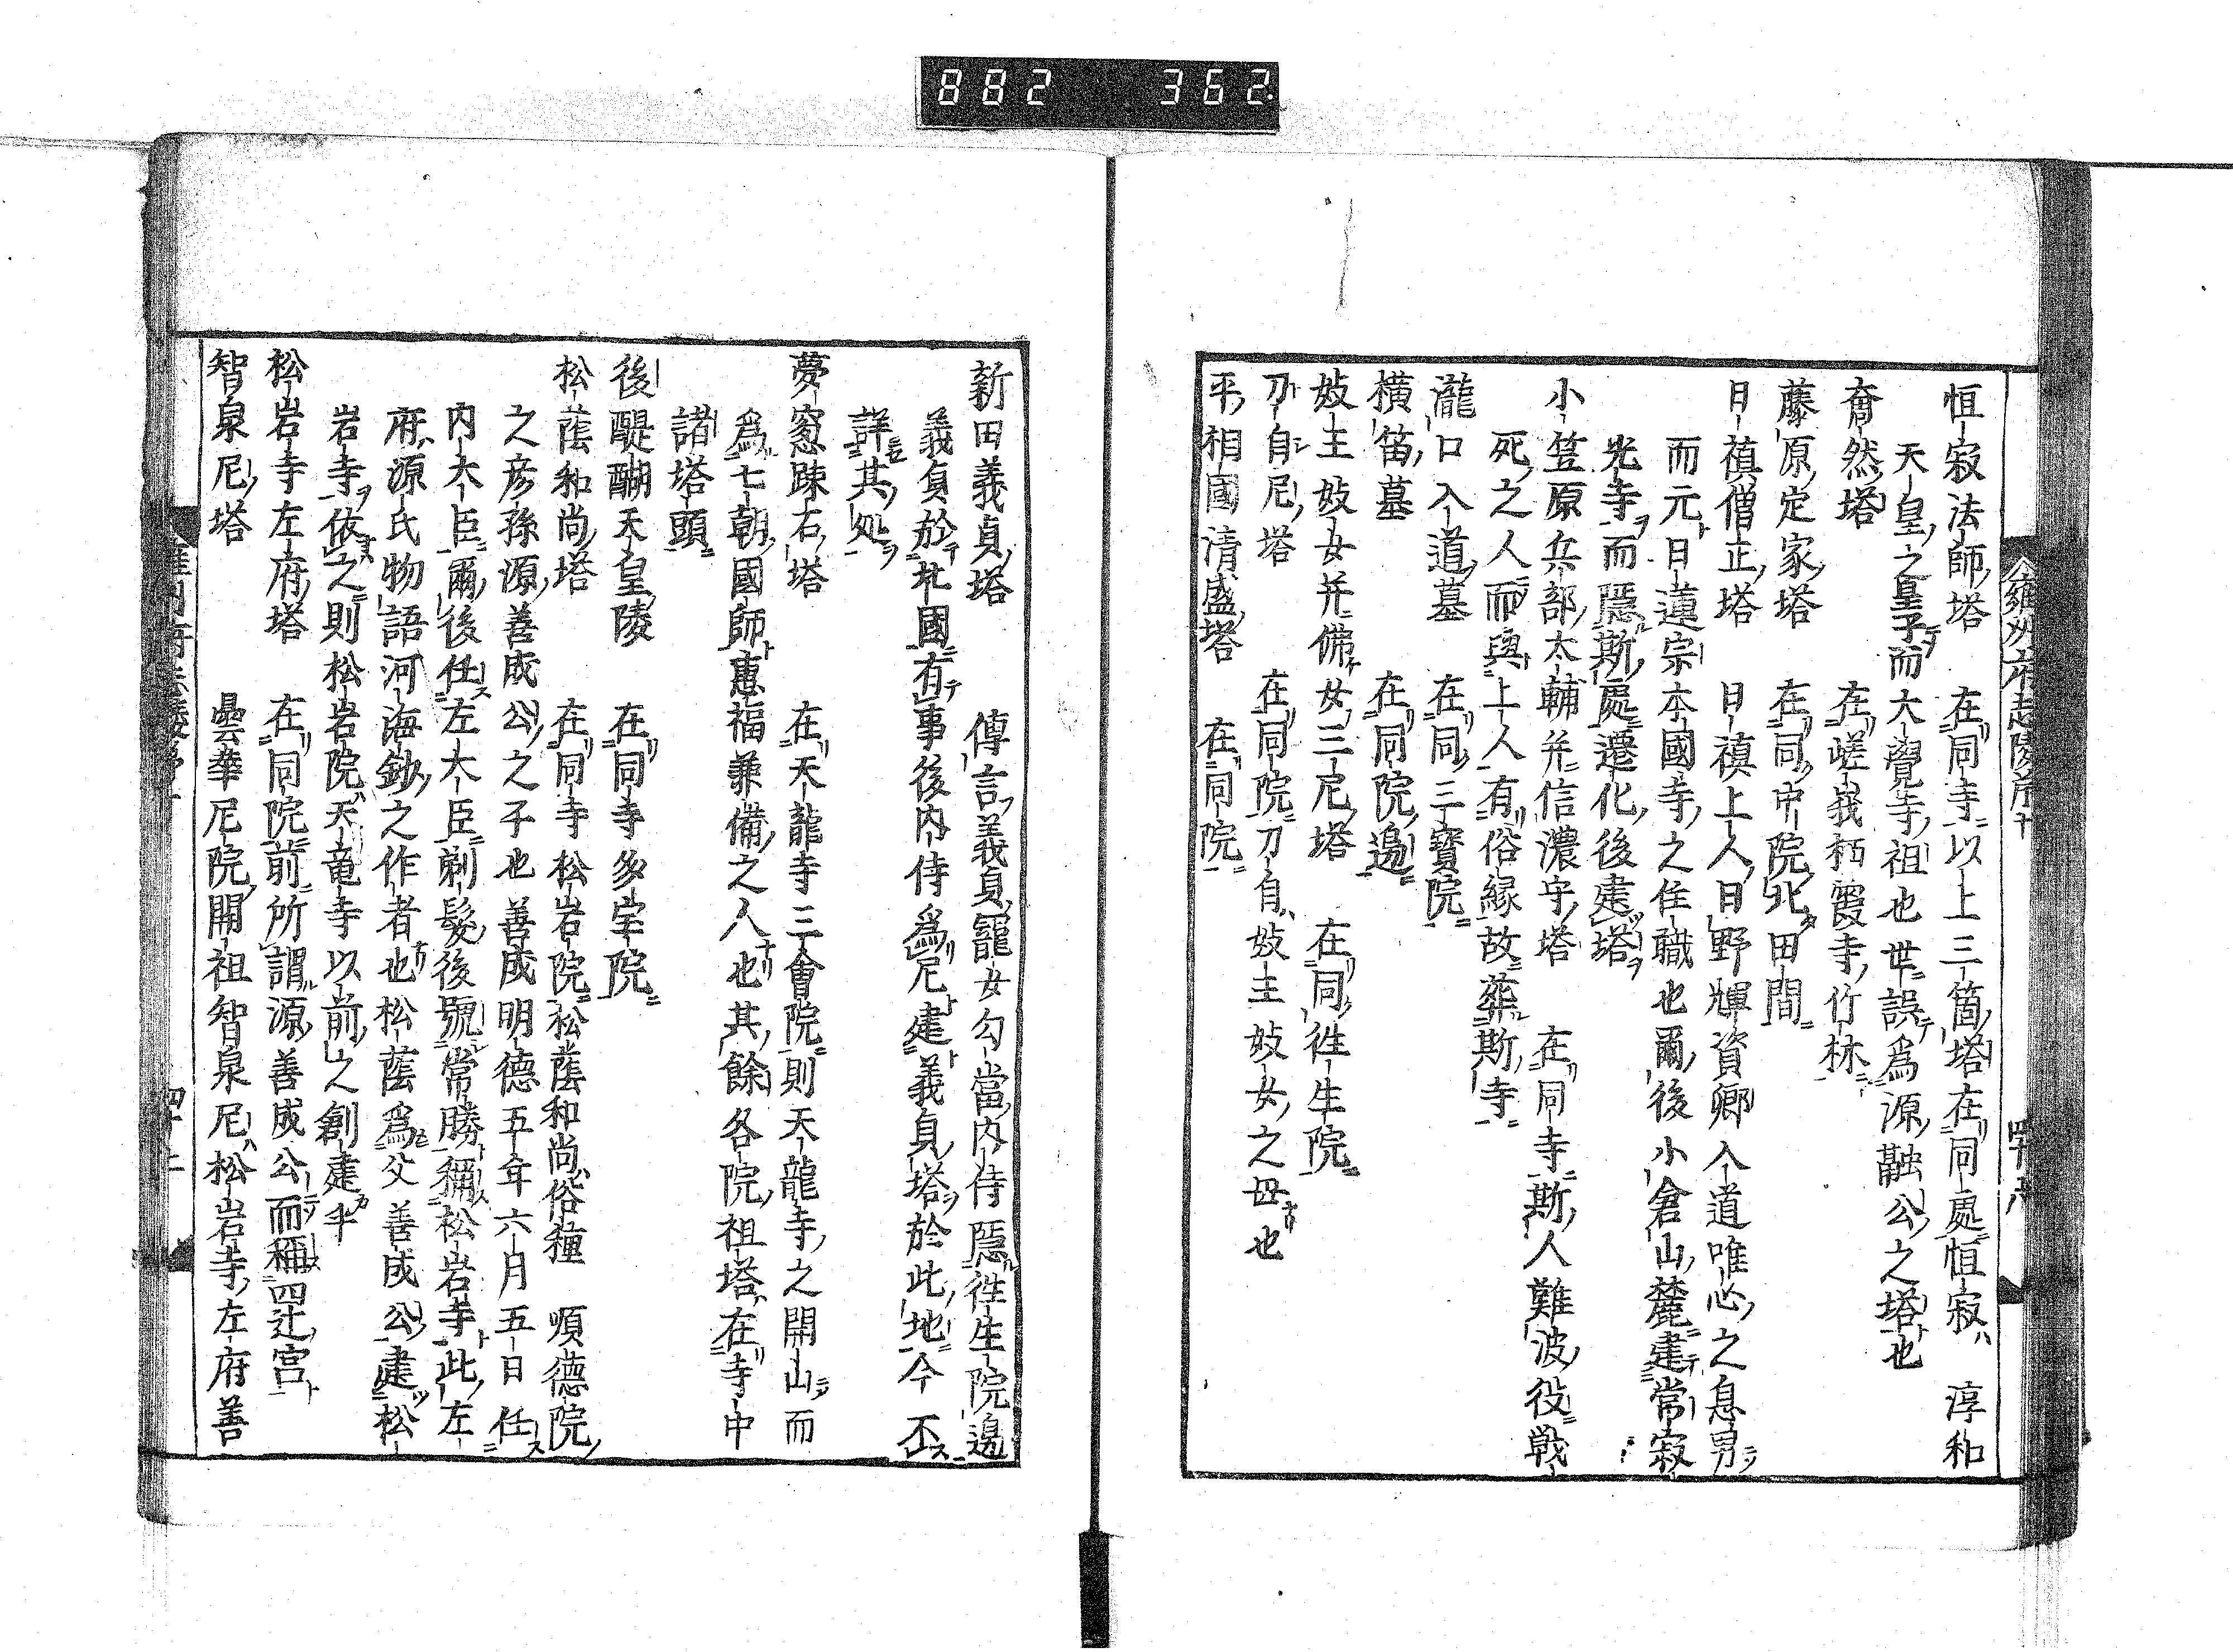 882 362
雍州府志陵墓十 四十八
恒寂法師塔 在同寺以上三箇塔在同處恒寂 淳和
天皇之皇子而大覺寺祖也世誤爲源融公之塔也
奝然塔 在嵯峩栖霞寺竹林
藤原定家塔 在同中院北田間
日禛僧正塔 日禛上人日野輝資卿入道唯心之息男
而元日蓮宗本國寺之住職也爾後小倉山麓建常寂
光寺而隱斯處遷化後建塔
小笠原兵部太輔并信濃守塔 在同寺斯人難波役戦
死之人而與上人有俗縁故葬斯寺
瀧口入道墓 在同三寳院
横笛墓 在同院邊
妓主妓女并佛女三尼塔 在同徃生院
刀自尼塔 在同院刀自妓主妓女之母也
平相國清盛塔 在同院
新田義貞塔 傳言義貞寵女勾當内侍隱徃生院邊
義貞於北國有事後内侍爲尼建義貞塔於此地今不
詳其処
夢窓踈石塔 在天龍寺三會院則天龍寺之開山而
爲七朝國師惠福兼備之人也其餘各院祖塔在寺中
諸塔頭
後醍醐天皇陵 在同寺多宝院
松蔭和尚塔 在同寺松岩院松蔭和尚俗種 順德院
之彦孫源善成公之子也善成明德五年六月五日任
内大臣爾後任左大臣剃髮後號常勝稱松岩寺此左
府源氏物語河海鈔之作者也松蔭爲父善成公建松
岩寺依之則松岩院天竜寺以前之創建乎
松岩寺左府塔 在同院前所謂源善成公而稱四辻宮
智泉尼塔 曇華尼院開祖智泉尼松岩寺左府善